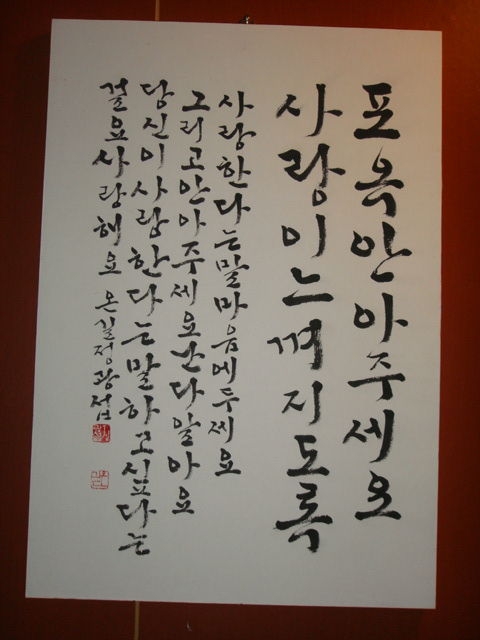 포옥안아주세요
사랑이느껴지도록
사랑한다는말마음에두세요
그리고안아주세요난다알아요
당신이사랑한다는말하고싶다는
걸요사랑해요 온실정광섭